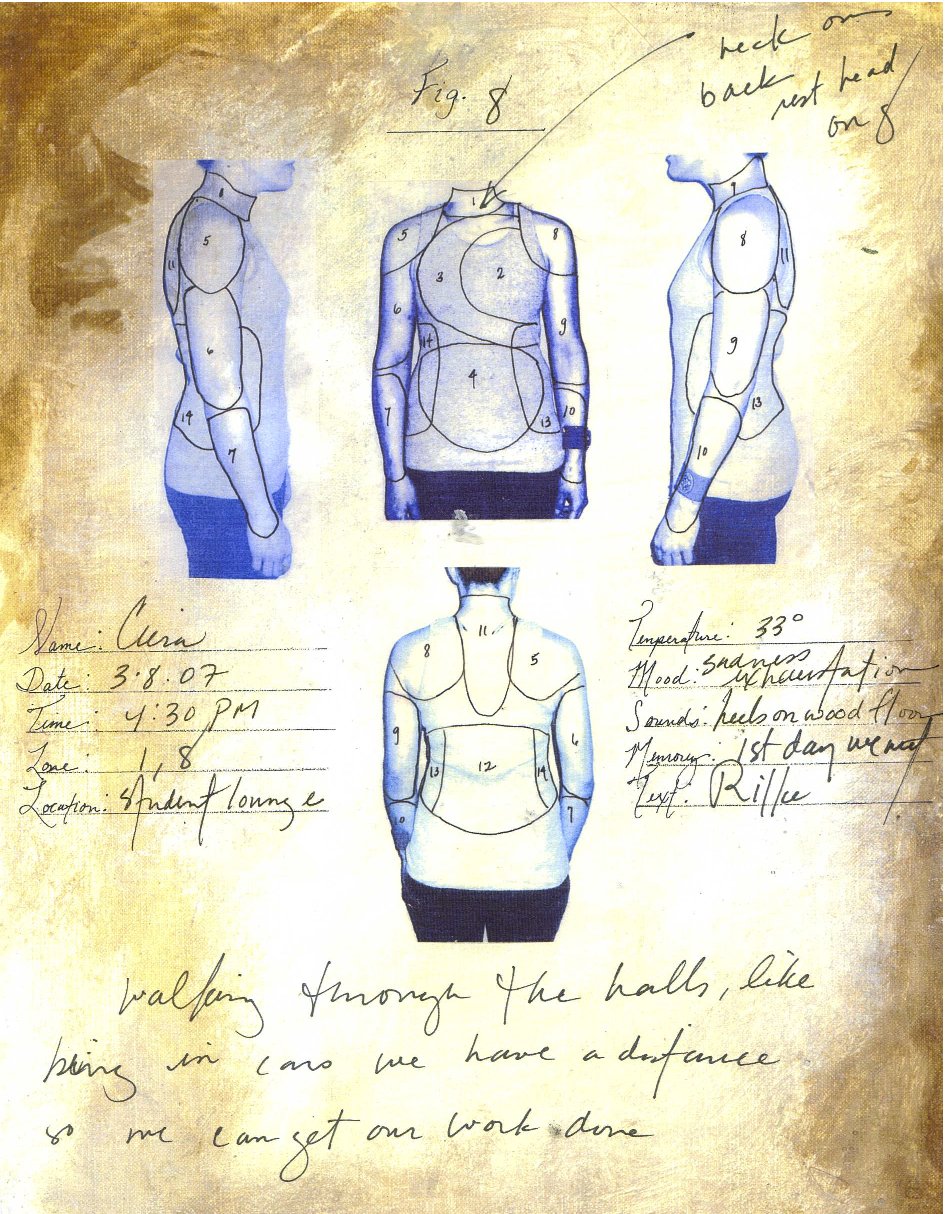 neck on
back rest head
on 8
Fig. 8
1
5
11
6
14
7
1
5
8
3
2
6
9
14
4
7
13
10
1
8
11
9
13
10
11
8
5
9
6
13
12
14
10
7
Name:
Date: 3.8.07
Time: 4:30 PM
Zone: 1, 8
Location: Student lounge
Temperature: 33°
Mood: sadness
exhaustation
Sounds: heels on wood floor
Memory: 1st day we met
Text: Rilke
walking through the halls, like
being in cars we have a distance
so we can get our work done